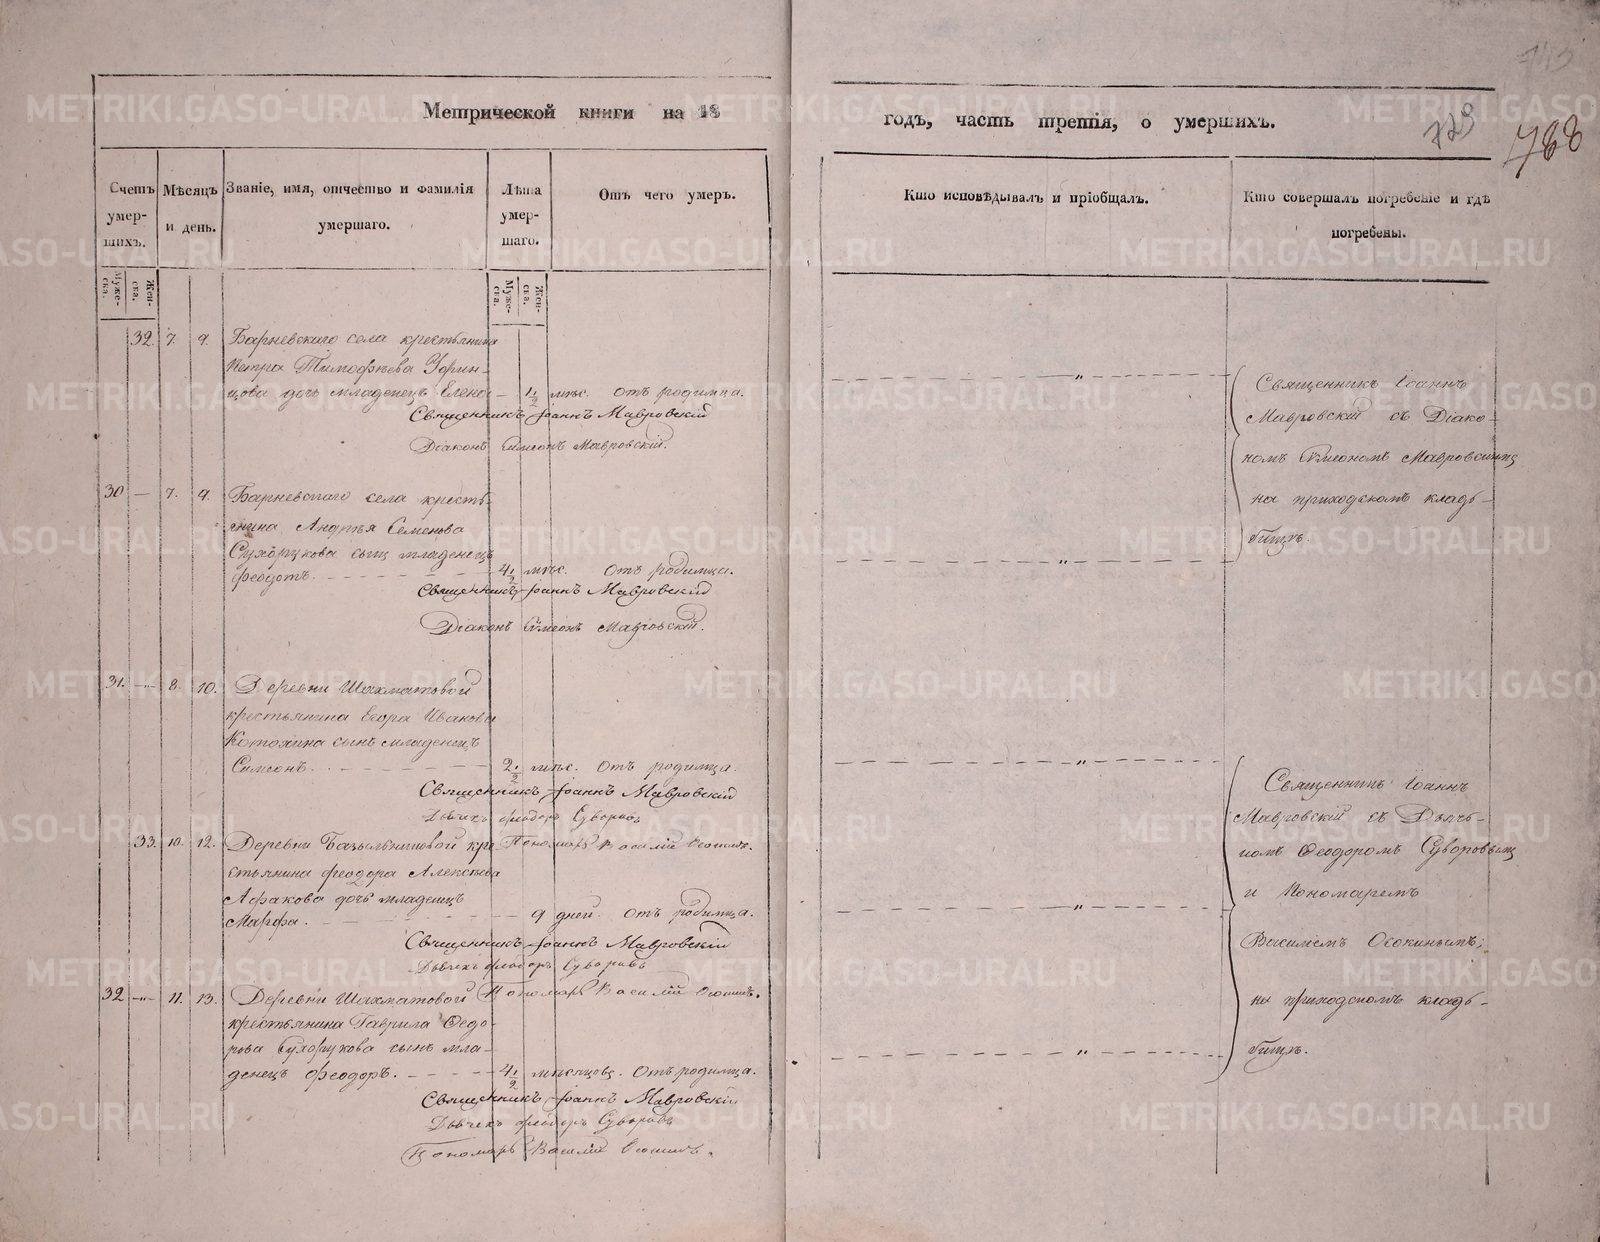 743
Метрической книги на 18
годъ, часть третія, о умершихъ.
729
788
Счетъ умер-шихъ.
Мѣсяцъ и день.
Званіе, имя, отчество и фамилія умершаго.
Лѣта умер-шаго.
Отъ чего умеръ.
Кто исповѣдывалъ и пріобщалъ.
Кто совершалъ погребеніе и гдѣ погребены.
Муже-ска.
Жен-ска.
Муже-ска.
Жен-ска.
32. 7. 9. Барневскаго села крестьянина
Петра Тимофѣева Уфин-
цова дочь младенецъ Елена — 1/2 мѣс. Отъ родимца.
Священникъ Іоаннъ Мавровскій
Діаконъ Симеонъ Мавровскій.
30 — 7. 9. Барневскаго села кресть-
янина Андрея Семенова
Сухорукова сынъ младенецъ
Феодотъ. 4 1/2 мѣс. Отъ родимца.
Священникъ Іоаннъ Мавровскій
Діаконъ Симеонъ Мавровскій.
Священникъ Іоаннъ
Мавровскій съ Діако-
номъ Симеономъ Мавровскимъ
на приходскомъ клад-
бищѣ.
31. —„— 8. 10. Деревни Шахматовой
крестьянина Егора Иванова
сынъ младенецъ
Симеонъ. 2 1/2 мѣс. Отъ родимца.
Священникъ Іоаннъ Мавровскій
Дьячекъ Феодоръ Суворовъ
Пономарь Василій Осокинъ.
33. 10. 12. Деревни кре-
стьянина Феодора Алексѣева
дочь младенецъ
Марфа. — 9 дней. Отъ родимца.
Священникъ Іоаннъ Мавровскій
Дьячекъ Феодоръ Суворовъ
Пономарь Василій Осокинъ.
32 —„— 11. 13. Деревни Шахматовой
крестьянина Гаврила Федо-
рова Сухорукова сынъ мла-
денецъ Феодоръ. 4 1/2 мѣсяцовъ. Отъ родимца.
Священникъ Іоаннъ Мавровскій
Дьячекъ Феодоръ Суворовъ
Пономарь Василій Осокинъ.
Священникъ Іоаннъ
Мавровскій съ Дьяч-
комъ Феодоромъ Суворовымъ
и Пономаремъ
Василіемъ Осокинымъ;
на приходскомъ клад-
бищѣ.
METRIKI.GASO-URAL.RU